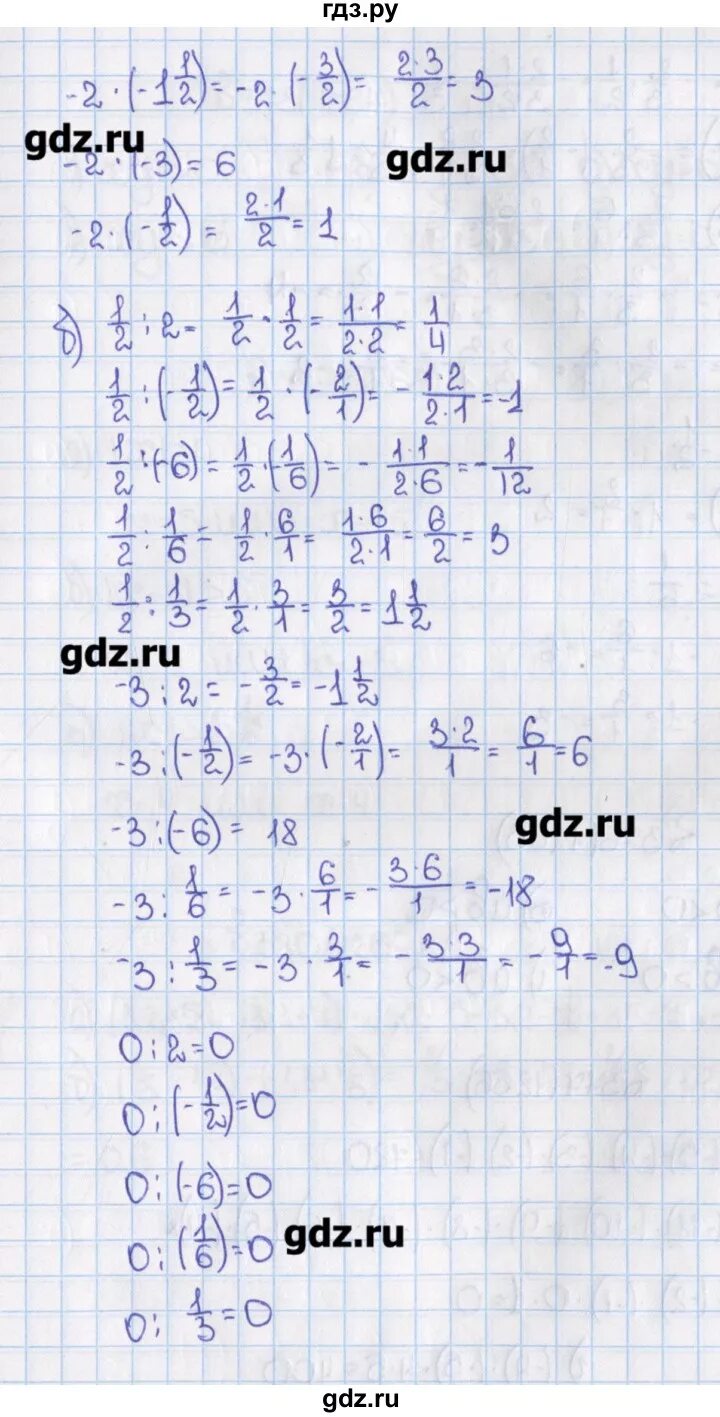 гдз.ру
-2 · (-1 1/2) = -2 · (-3/2) = 2·3/2 = 3
gdz.ru
-2 · (-3) = 6
gdz.ru
-2 · (-1/2) = 2·1/2 = 1
б) 1/2 : 2 = 1/2 · 1/2 = 1·1/2·2 = 1/4
1/2 : (-1/2) = 1/2 · (-2/1) = - 1·2/2·1 = -1
1/2 : (-6) = 1/2 · (-1/6) = - 1·1/2·6 = - 1/12
1/2 : 1/6 = 1/2 · 6/1 = 1·6/2·1 = 6/2 = 3
1/2 : 1/3 = 1/2 · 3/1 = 3/2 = 1 1/2
gdz.ru
-3 : 2 = - 3/2 = -1 1/2
-3 : (-1/2) = -3 · (-2/1) = 3·2/1 = 6/1 = 6
gdz.ru
-3 : (-6) = 18
-3 : 1/6 = -3 · 6/1 = - 3·6/1 = -18
-3 : 1/3 = -3 · 3/1 = - 3·3/1 = - 9/1 = -9
0 : 2 = 0
0 : (-1/2) = 0
0 : (-6) = 0
0 : (1/6) = 0
gdz.ru
0 : 1/3 = 0
gdz.ru